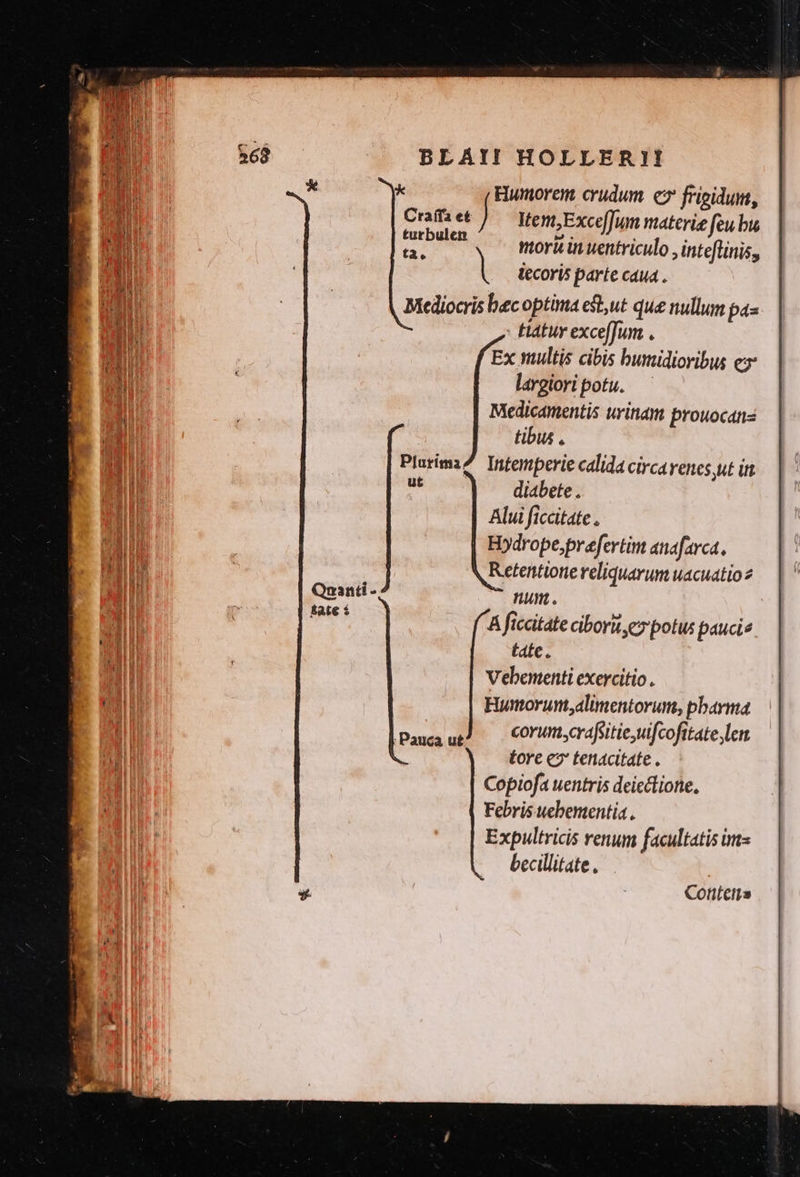 268 BLAII HOLLERII
* *
Craſſa et
turbulen
ta.
Humorem crudum & frigidum,
Item, Exceſſum materiæ ſeu hu
morū in uentriculo, inteſtinis,
iecoris parte caua.
Mediocris hæc optima eſt, ut quæ nullum pa=
tiatur exceſſum.
Quanti-
tate:
Plurima
ut
Ex multis cibis humidioribus &
largiori potu.
Medicamentis urinam prouocan=
tibus.
Intemperie calida circa renes, ut in
diabete.
Alui ſiccitate.
Hydrope, præſertim anaſarca.
Retentione reliquarum uacuatio=
num.
Pauca ut
A ſiccitate ciborū, & potus pauci=
tate.
Vehementi exercitio.
Humorum, alimentorum, pharma
corum, craſsitie, uiſcoſitate, len
tore & tenacitate.
Copioſa uentris deiectione.
Febris uehementia.
Expultricis renum facultatis im=
becillitate.
* Conten=